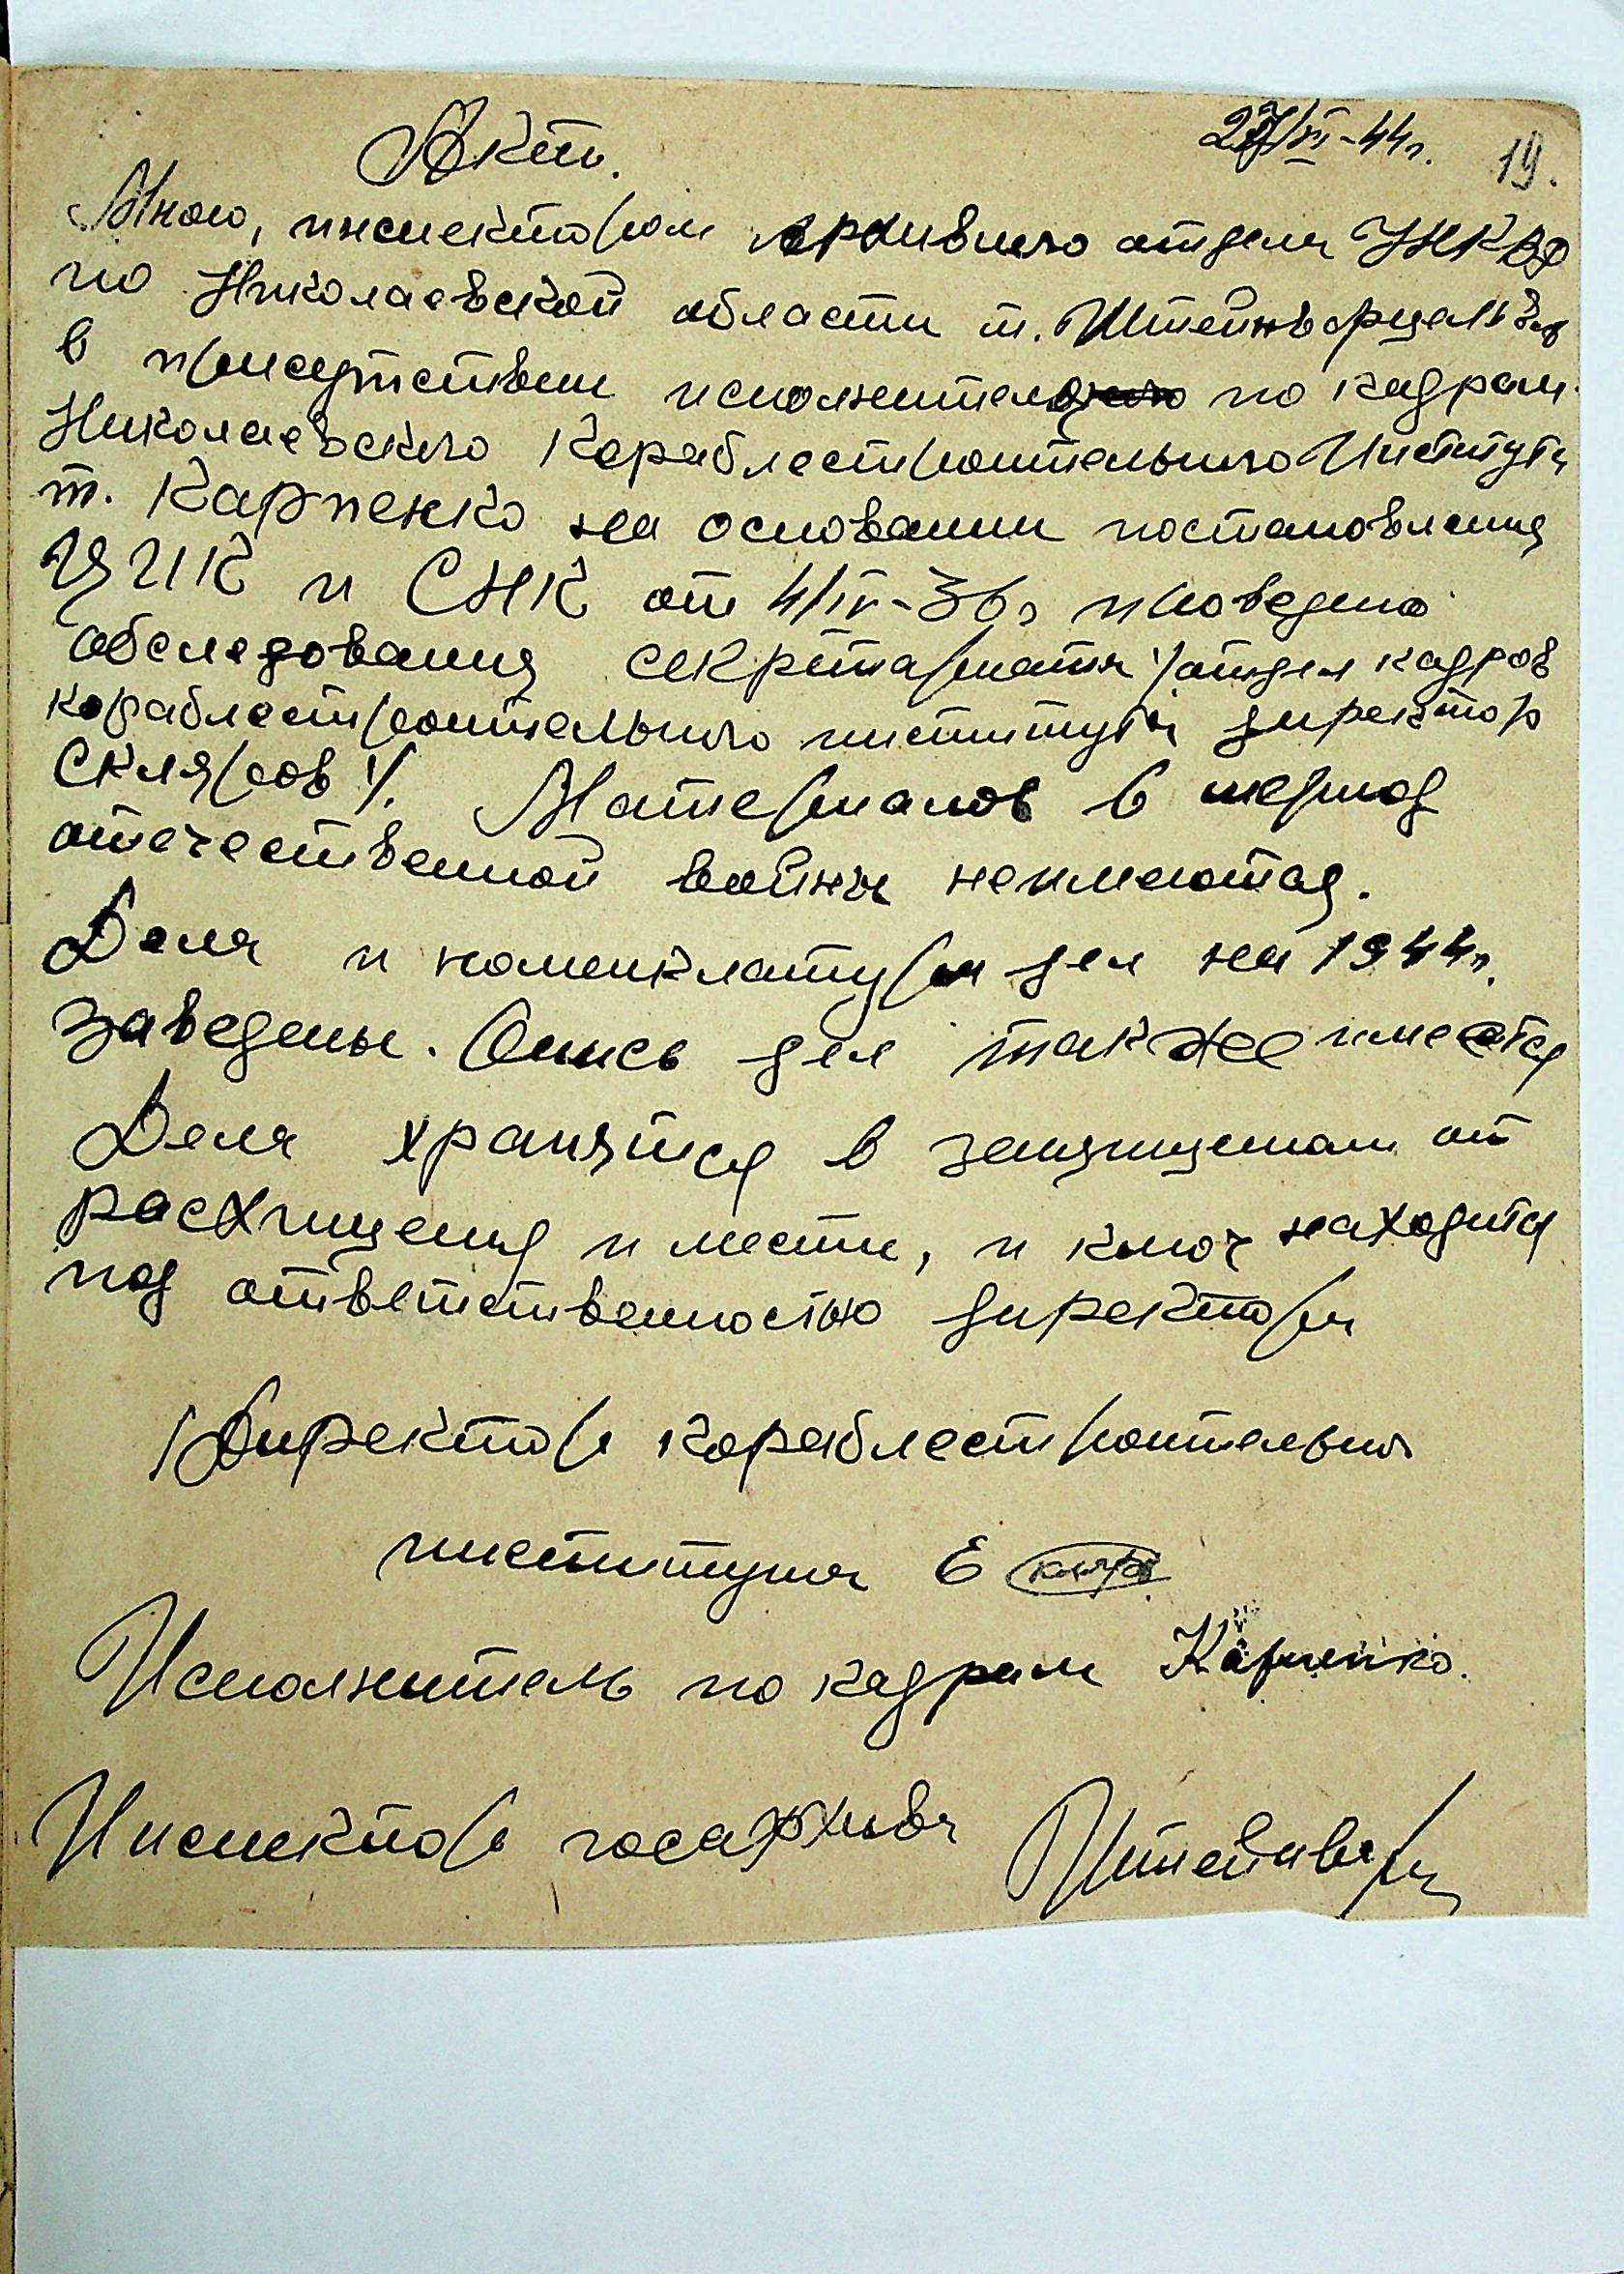 Акт.
27/VI-44г. 19.
Мною, инспектором архивного отдела УНКВД
по Николаевской области т. Штейнварцем
в присутствии исполнителя по кадрам
Николаевского Кораблестроительного Института
т. Карпенко на основании постановления
ЦИК и СНК от 4/IV-36г проведено
обследования секретариата /отдел кадров
кораблестроительного института директор
Скляров/. Материалов в период
отечественной войны неимеются.
Дела и номенклатура дел на 1944г.
заведены. Опись дел также имеется
Дела хранятся в защищенном от
расхищения и месте, и ключ находится
под ответственностью директора
Директор кораблестроительна
института
Исполнитель по кадрам Карпенко.
Инспектор госархива Штейнварц